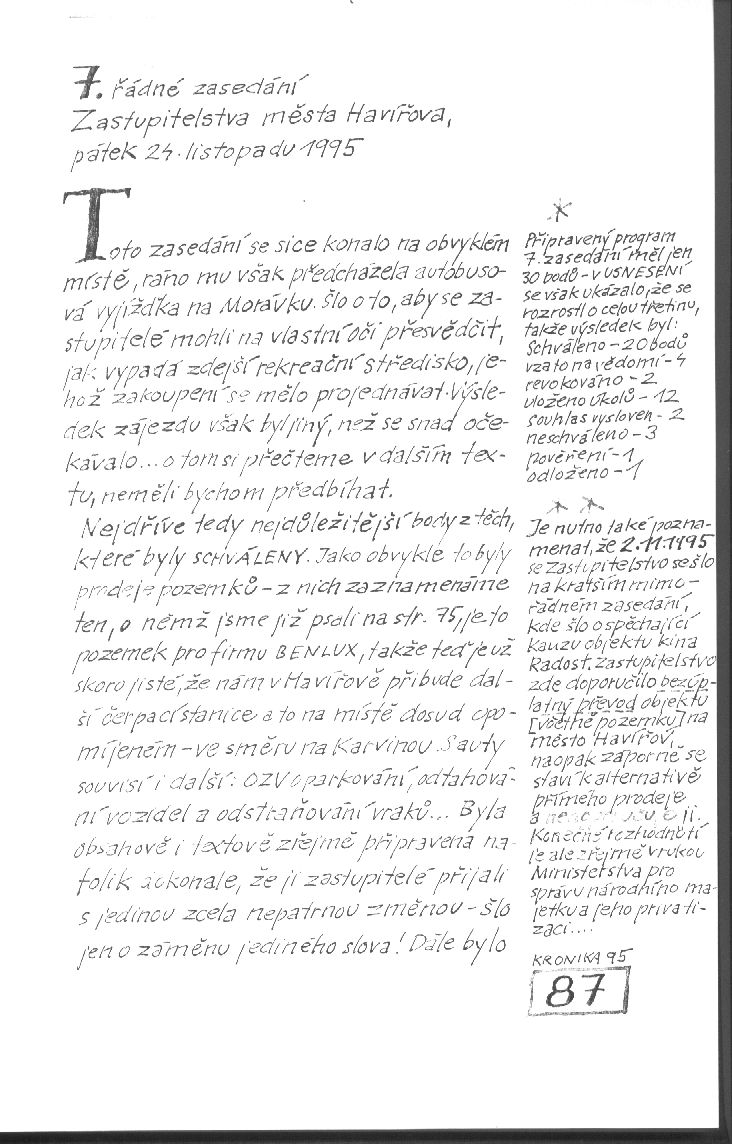 7. řádné zasedání
Zastupitelstva města Havířova,
pátek 24. listopadu 1995
Toto zasedání se sice konalo na obvyklém
místě, ráno mu však předcházela autobuso-
vá vyjížďka na Morávku. Šlo o to, aby se za-
stupitelé mohli na vlastní oči přesvědčit,
jak vypadá zdejší rekreační středisko, je-
hož zakoupení se mělo projednávat. Výsle-
dek zájezdu však byl jiný, než se snad oče-
kávalo... o tom si přečteme v dalším tex-
tu, neměli bychom předbíhat.
Nejdříve tedy nejdůležitější body z těch,
které byly SCHVÁLENY. Jako obvykle to byly
prodeje pozemků - z nich zaznamenáme
ten, o němž jsme již psali na str. 75, je to
pozemek pro firmu BENLUX, takže teď je už
skoro jisté, že nám v Havířově přibude dal-
ší čerpací stanice a to na místě dosud opo-
míjeném - ve směru na Karvinou. S auty
souvisí i další: OZV o parkování, odtahová-
ní vozidel a odstraňování vraků... Byla
obsahově i textově zřejmě připravena na-
tolik dokonale, že ji zastupitelé přijali
s jedinou zcela nepatrnou změnou - šlo
jen o záměnu jediného slova! Dále bylo
*
Připravený program
7. zasedání měl jen
30 bodů - v USNESENÍ
se však ukázalo, že se
rozrostl o celou třetinu,
takže výsledek byl:
Schváleno - 20 bodů
vzato na vědomí - 4
revokováno - 2
uloženo úkolů - 12
souhlas vysloven - 2
neschváleno - 3
pověření - 1
odloženo - 1
* *
Je nutno také pozna-
menat, že 2.11.1995
se zastupitelstvo sešlo
na kratším mimo-
řádném zasedání,
kde šlo o spěchající
kauzu objektu kina
Radost. Zastupitelstvo
zde doporučilo bezúp-
latný převod objektu
[včetně pozemku] na
město Havířov,
naopak záporně se
staví k alternativě
přímého prodeje
a
Konečné rozhodnutí
je ale zřejmě v rukou
Ministerstva pro
správu národního ma-
jetku a jeho privati-
zaci....
KRONIKA 95
87